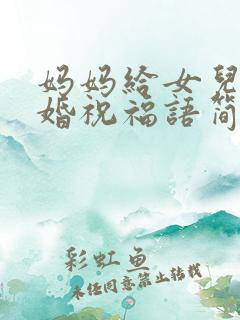 妈妈給女兒
婚祝福語简
彩虹鱼
未经同意禁止转载